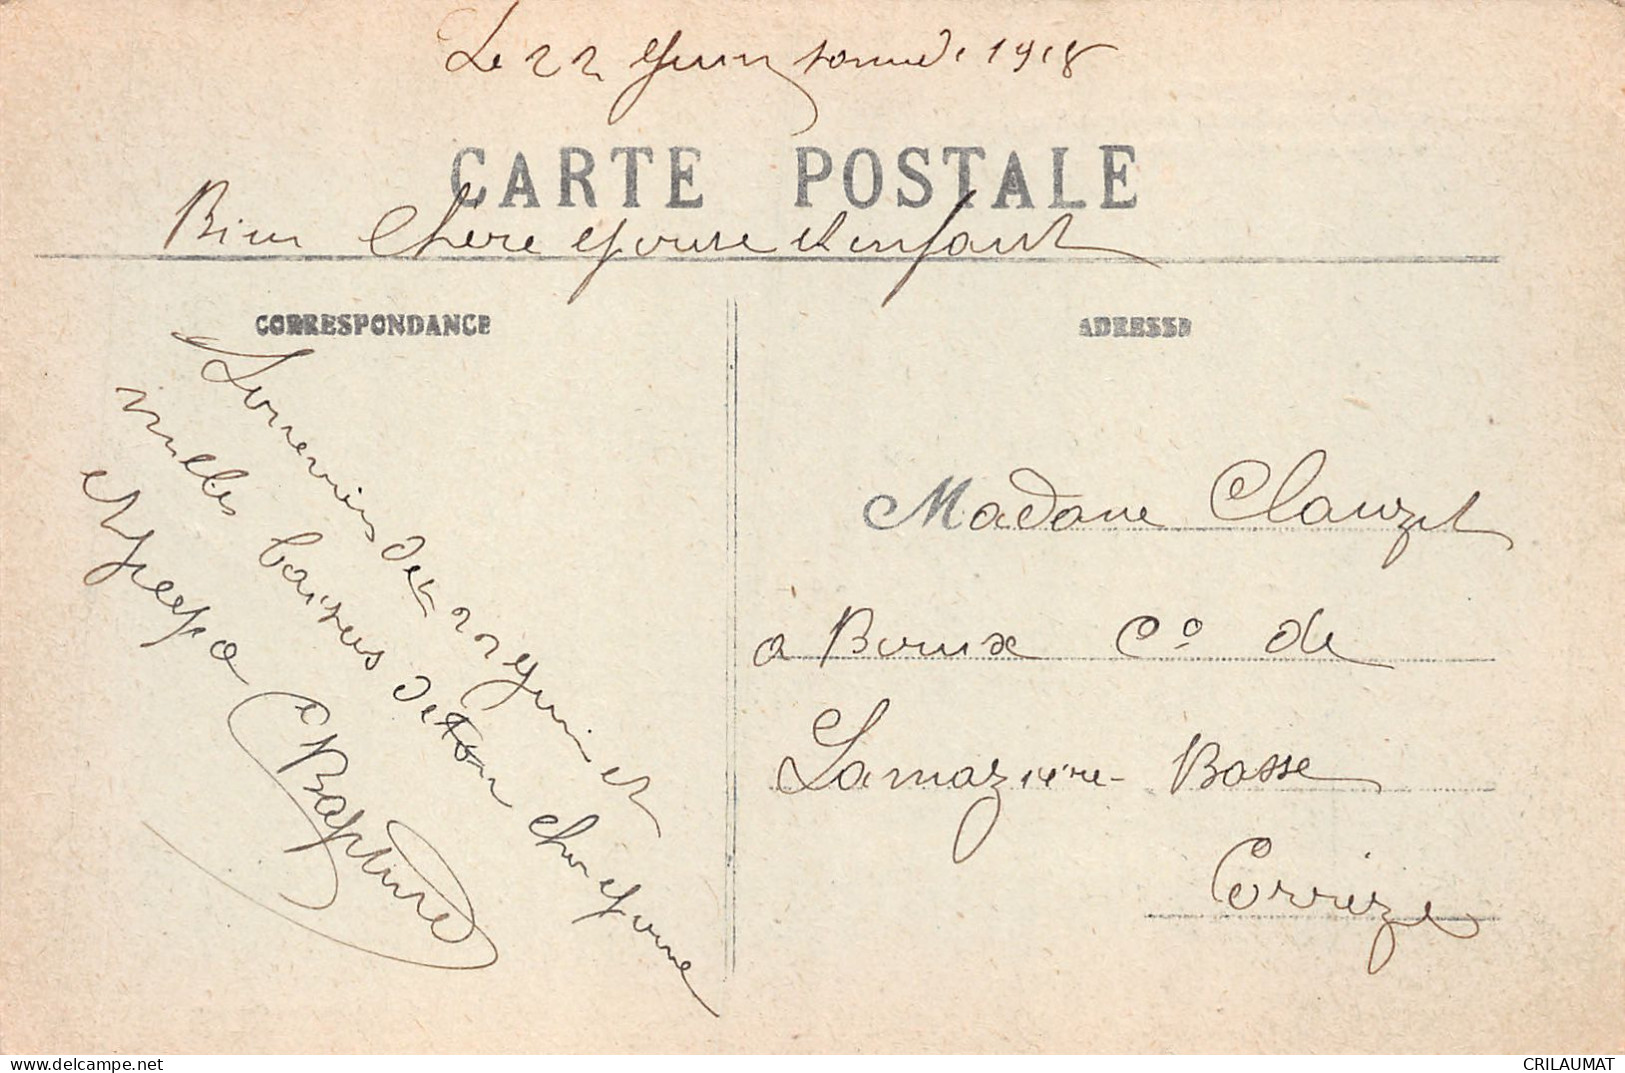 Le 22 Juin samedi 1918
CARTE POSTALE
Bien Chère epouse et enfant
CORRESPONDANCE
Souvenirs du 22 Juin et
milles baisers de ton cher epoux
et papa
Baptiste
ADRESSE
Madame Clauzet
a Broux Cne de
Lamazière-Basse
Corrèze
CRILAUMAT